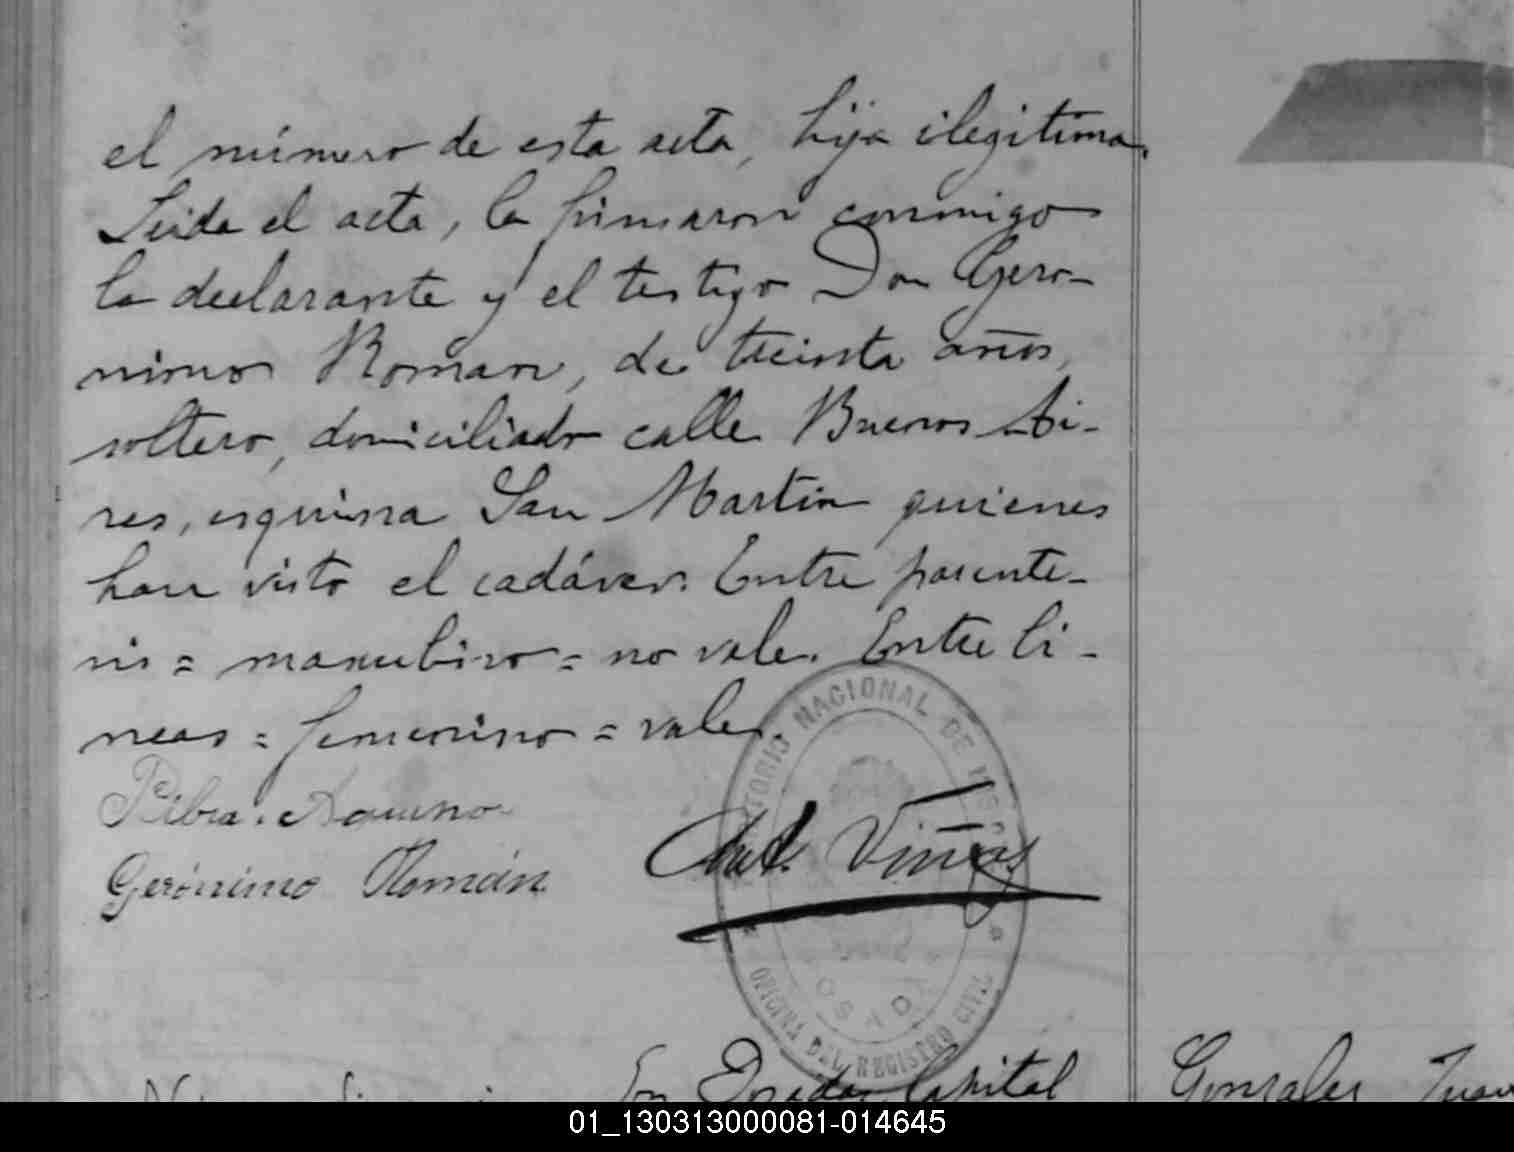 el número de esta acta, hija ilegítima.
Leida el acta, la firmaron conmigo
la declarante y el testigo Don Gero-
nimo Roman, de treinta años,
soltero, domiciliado calle Buenos Ai-
res, esquina San Martin quienes
han visto el cadáver. Entre parente-
sis = masculino = no vale. Entre li-
neas = femenino = vale.
Aquino
Gerónimo Román
Viñas
TERRITORIO NACIONAL DE MISIONES
POSADAS
OFICINA DEL REGISTRO CIVIL
En Posadas, Capital
Gonzalez Juan
01_130313000081-014645